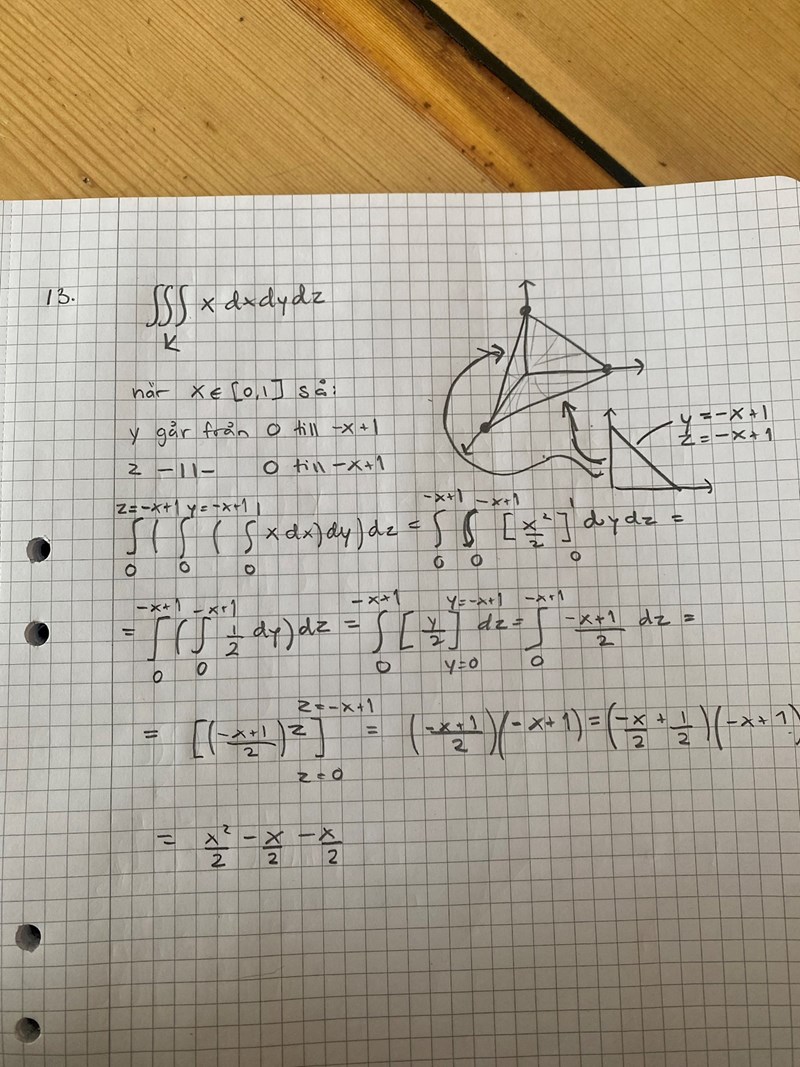 13. ∭ x dxdydz
K
när x ∈ [0,1] så:
y går från 0 till -x+1
z -11- 0 till -x+1
y = -x+1
z = -x+1
∫_0^{z=-x+1} ( ∫_0^{y=-x+1} ( ∫_0^1 x dx) dy) dz = ∫_0^{-x+1} ∫_0^{-x+1} [x²/2]_0^1 dydz =
= ∫_0^{-x+1} ( ∫_0^{-x+1} 1/2 dy) dz = ∫_0^{-x+1} [y/2]_{y=0}^{y=-x+1} dz = ∫_0^{-x+1} (-x+1)/2 dz =
= [((-x+1)/2) z]_{z=0}^{z=-x+1} = ((-x+1)/2)(-x+1) = (-x/2 + 1/2)(-x+1)
= x²/2 - x/2 - x/2